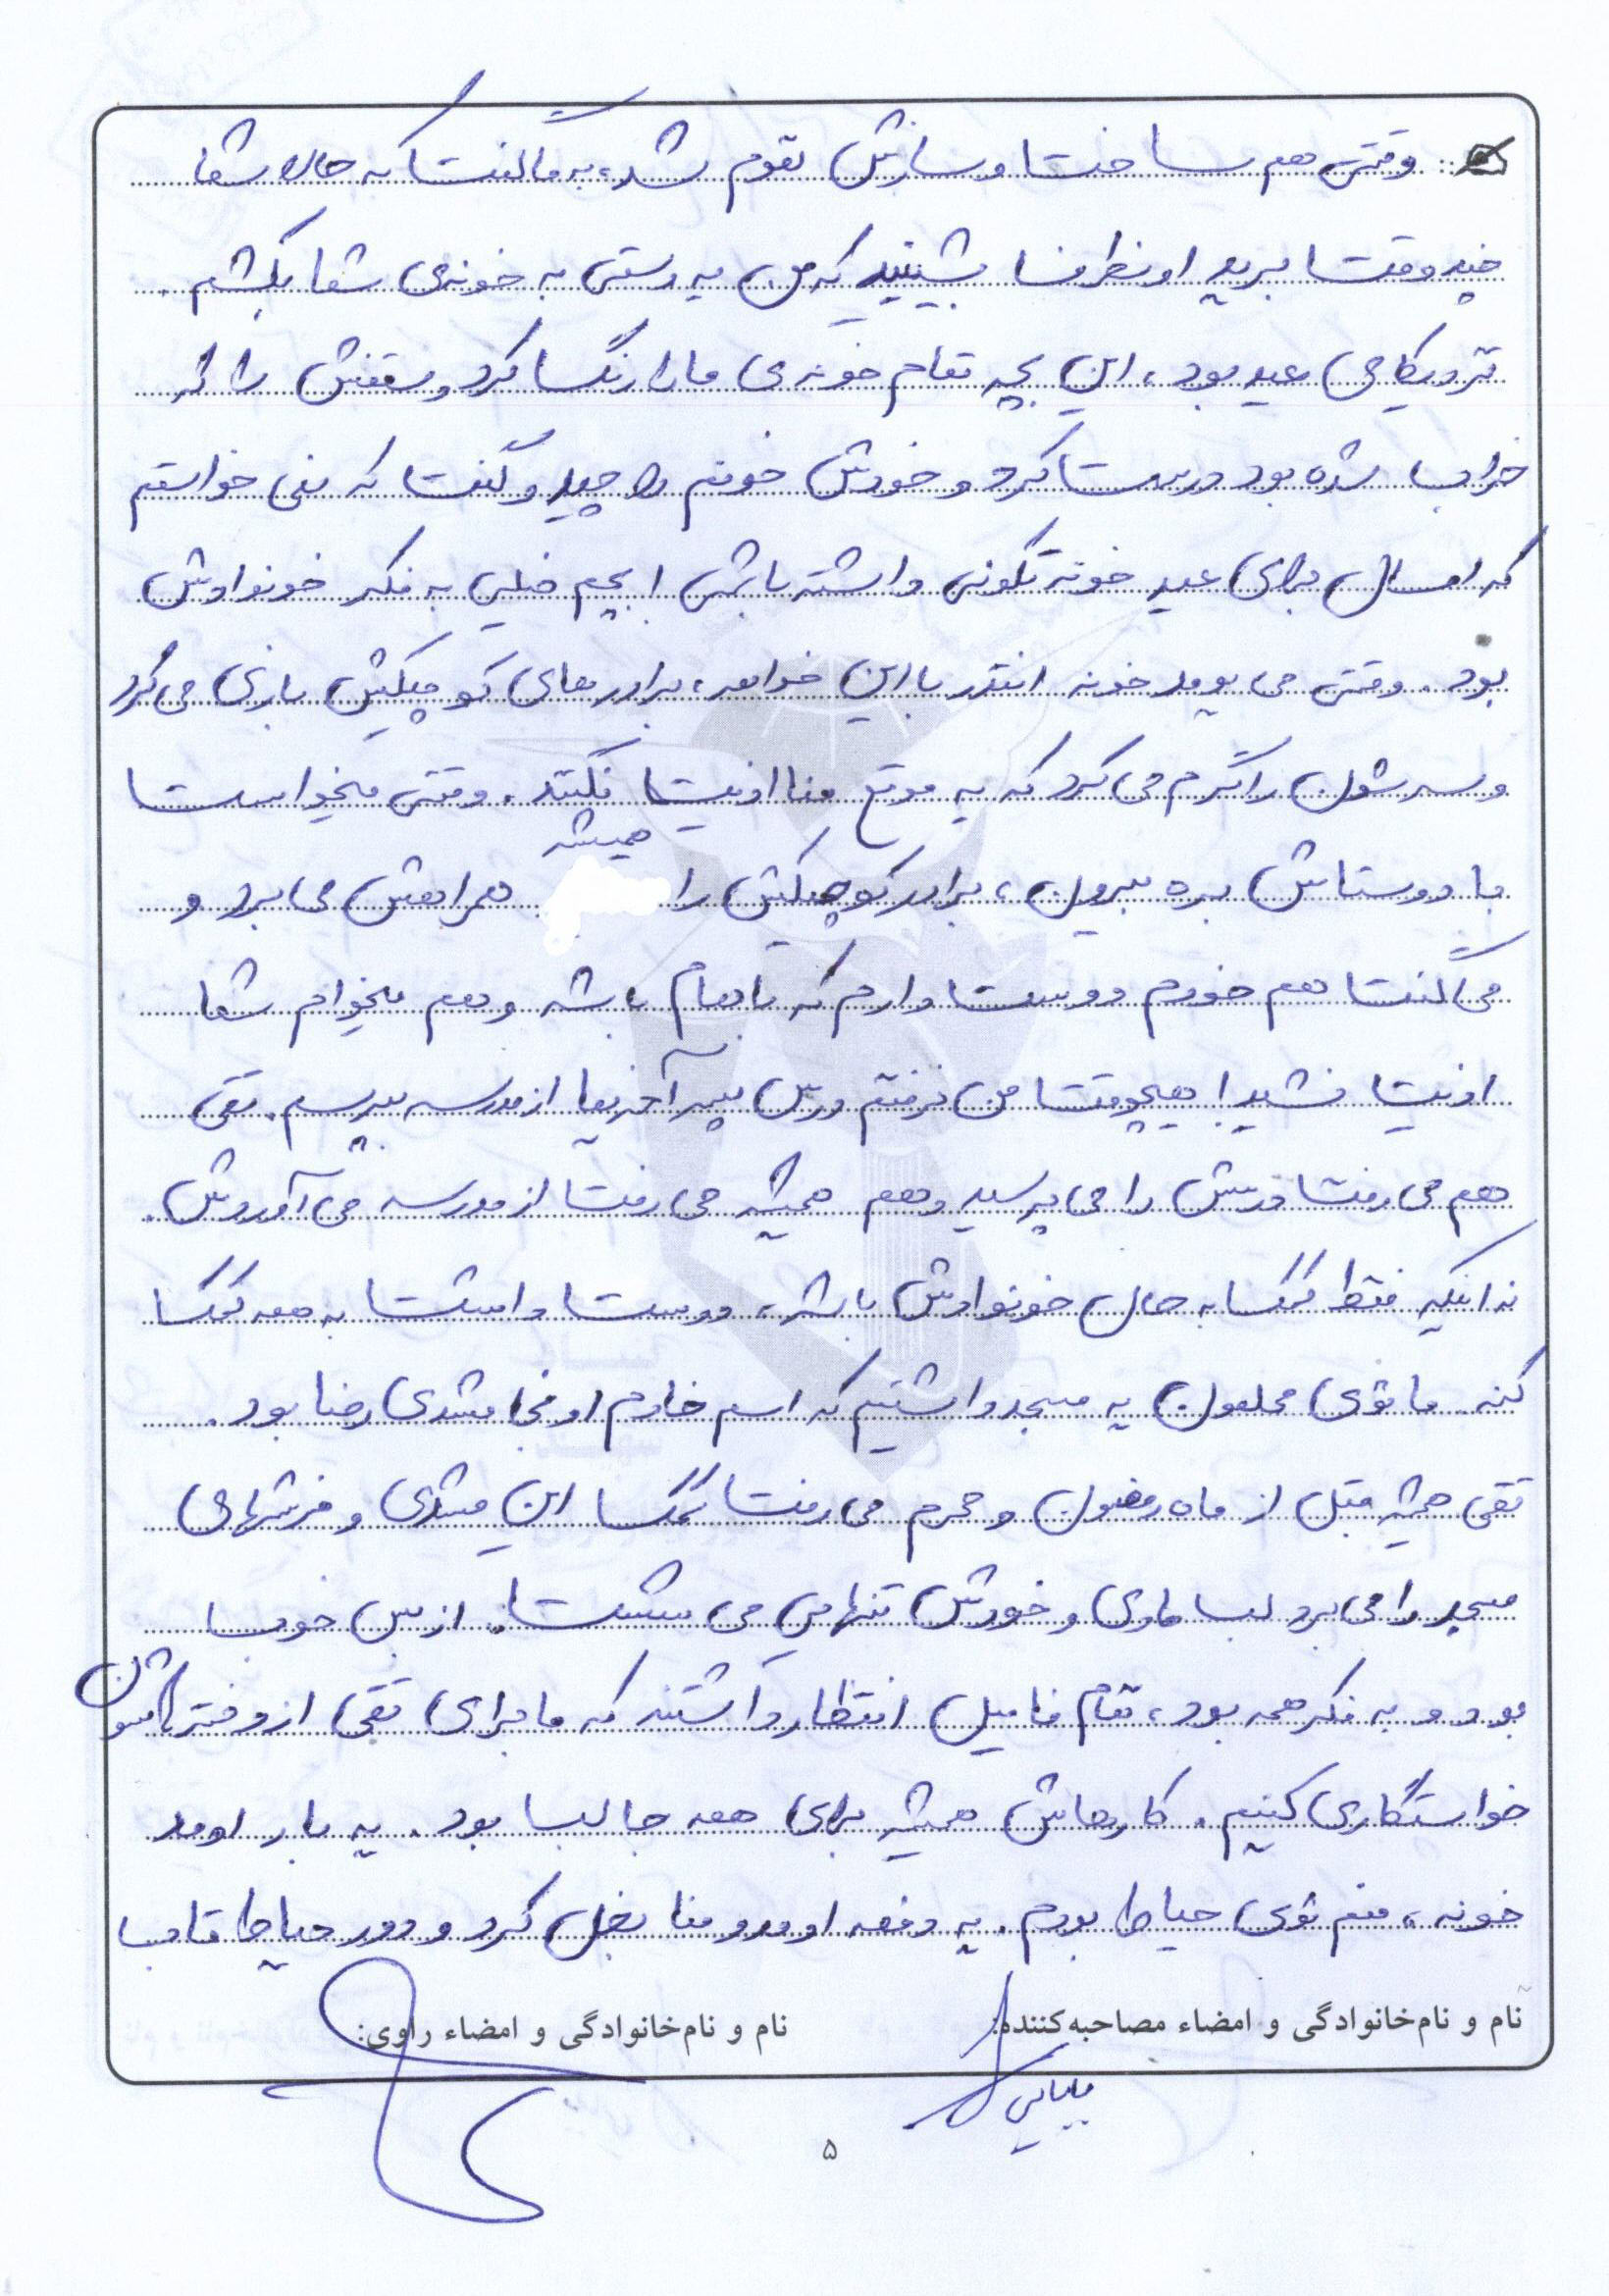 وقتی هم ساخت و سازش تموم شد، به ما گفت که حالا شما
چند وقت برید اونطرف بشینید که من یه دستی به خونه‌ی شما بکشم.
نزدیکای عید بود، این بچه تمام خونه‌ی ما را رنگ کرد و سقفش را که
خراب شده بود درست کرد و خودش خونم را چید و گفت که می خواستم
که امسال برای عید خونه تکونی داشته باشی! بچم خیلی به فکر خونوادش
بود. وقتی می یومد خونه انقدر با این خواهر، برادرهای کوچیکش بازی می کرد
و سرشون را گرم می کرد که یه موقع منا اذیت نکنند. وقتی میخواست
با دوستاش بره بیرون، برادر کوچیکش را همیشه همراهش می برد و
می گفت هم خودم دوست دارم که باهام باشه و هم میخوام شما
اذیت نشید! هیچوقت من نرفتم درس پسر آخریما از مدرسه بپرسم. تقی
هم می رفت درسش را می پرسید و هم همیشه می رفت از مدرسه می آوردش.
نه اینکه فقط کمک به حال خونوادش باشه، دوست داشت به همه کمک
کنه. ما توی محلمون یه مسجد داشتیم که اسم خادم اونجا مشدی رضا بود.
تقی همیشه قبل از ماه رمضون و محرم می رفت کمک این مشدی و فرشهای
مسجد را می برد لب مادی و خودش تنهایی می شست. از بس خوب
بود و به فکر همه بود، تمام فامیل انتظار داشتند که ما برای تقی از دختراشون
خواستگاری کنیم. کارهاش همیشه برای همه جالب بود. یه بار اومد
خونه، منم توی حیاط بودم. یه دفعه اومد و منا بغل کرد و دور حیاط تاب
نام و نام‌خانوادگی و امضاء مصاحبه‌کننده: نام و نام‌خانوادگی و امضاء راوی:
بابایی
۵